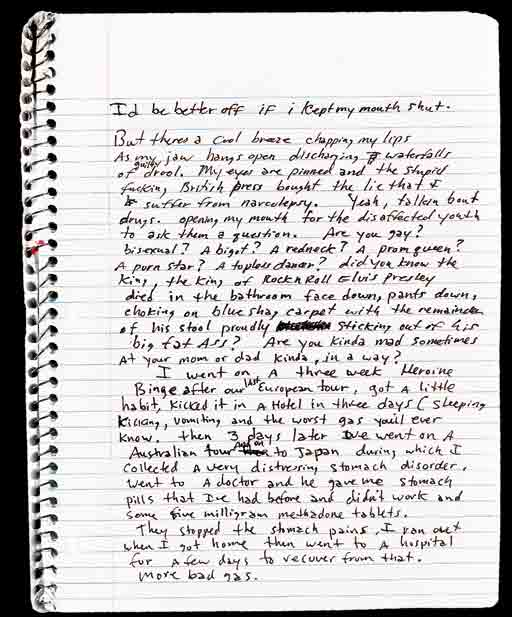 I'd be better off if i kept my mouth shut.
But theres a cool breeze chapping my lips
As my jaw hangs open discharging waterfalls
of guilty drool. My eyes are pinned and the stupid
fucking British press bought the lie that I
suffer from narcolepsy. Yeah, talken bout
drugs. opening my mouth for the disaffected youth
to ask them a question. Are you gay?
bisexual? A bigot? A redneck? A prom queen?
A porn star? A topless dancer? did you know the
King, the king of Rock n Roll Elvis Presley
died in the bathroom face down, pants down,
choking on blue shag carpet with the remainder
of his stool proudly sticking out of his
big fat Ass? Are you kinda mad sometimes
At your mom or dad kinda, in a way?
I went on A three week Heroine
Binge after our last European tour, got A little
habit, kicked it in A Hotel in three days (sleeping,
kicking, vomiting and the worst gas you'll ever
know. then 3 days later we went on A
Australian tour and on to Japan during which I
collected A very distressing stomach disorder.
went to A doctor and he gave me stomach
pills that I've had before and didn't work and
some five milligram methadone tablets.
They stopped the stomach pains, I ran out
when I got home then went to A hospital
for A few days to recover from that.
More bad gas.